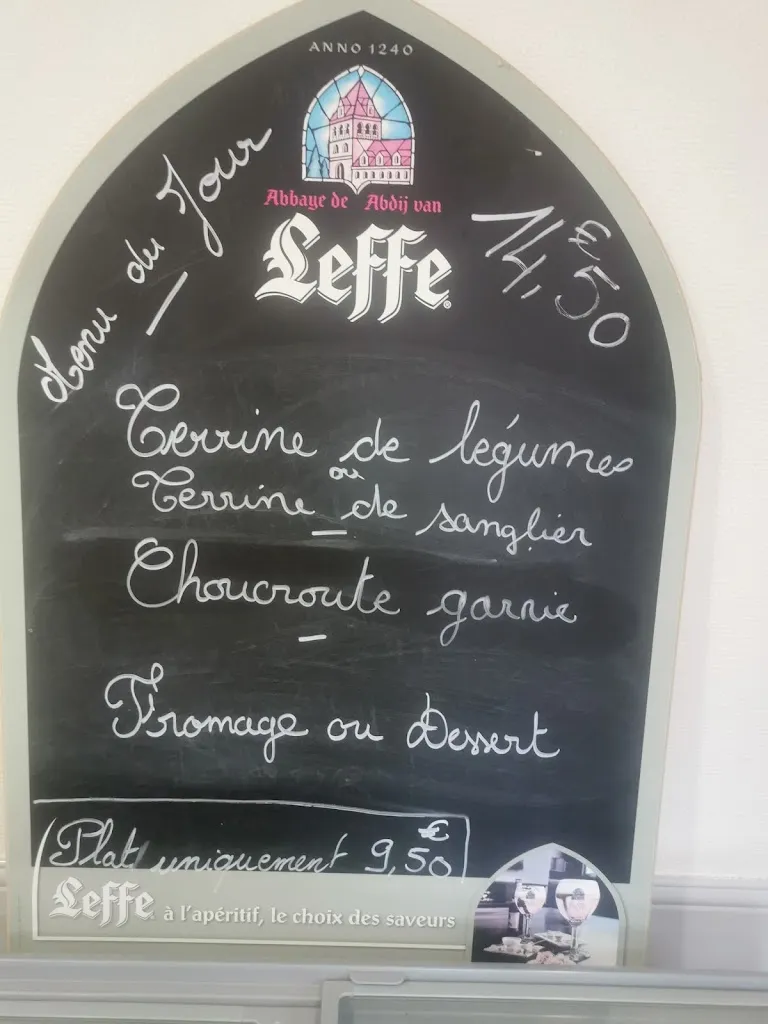 ANNO 1240
Abbaye de Abdij van
Leffe
Menu du Jour
14,€50
Terrine de légumes
ou
Terrine de sanglier
Choucroute garnie
Fromage ou Dessert
Plat uniquement 9,€50
Leffe à l'apéritif, le choix des saveurs